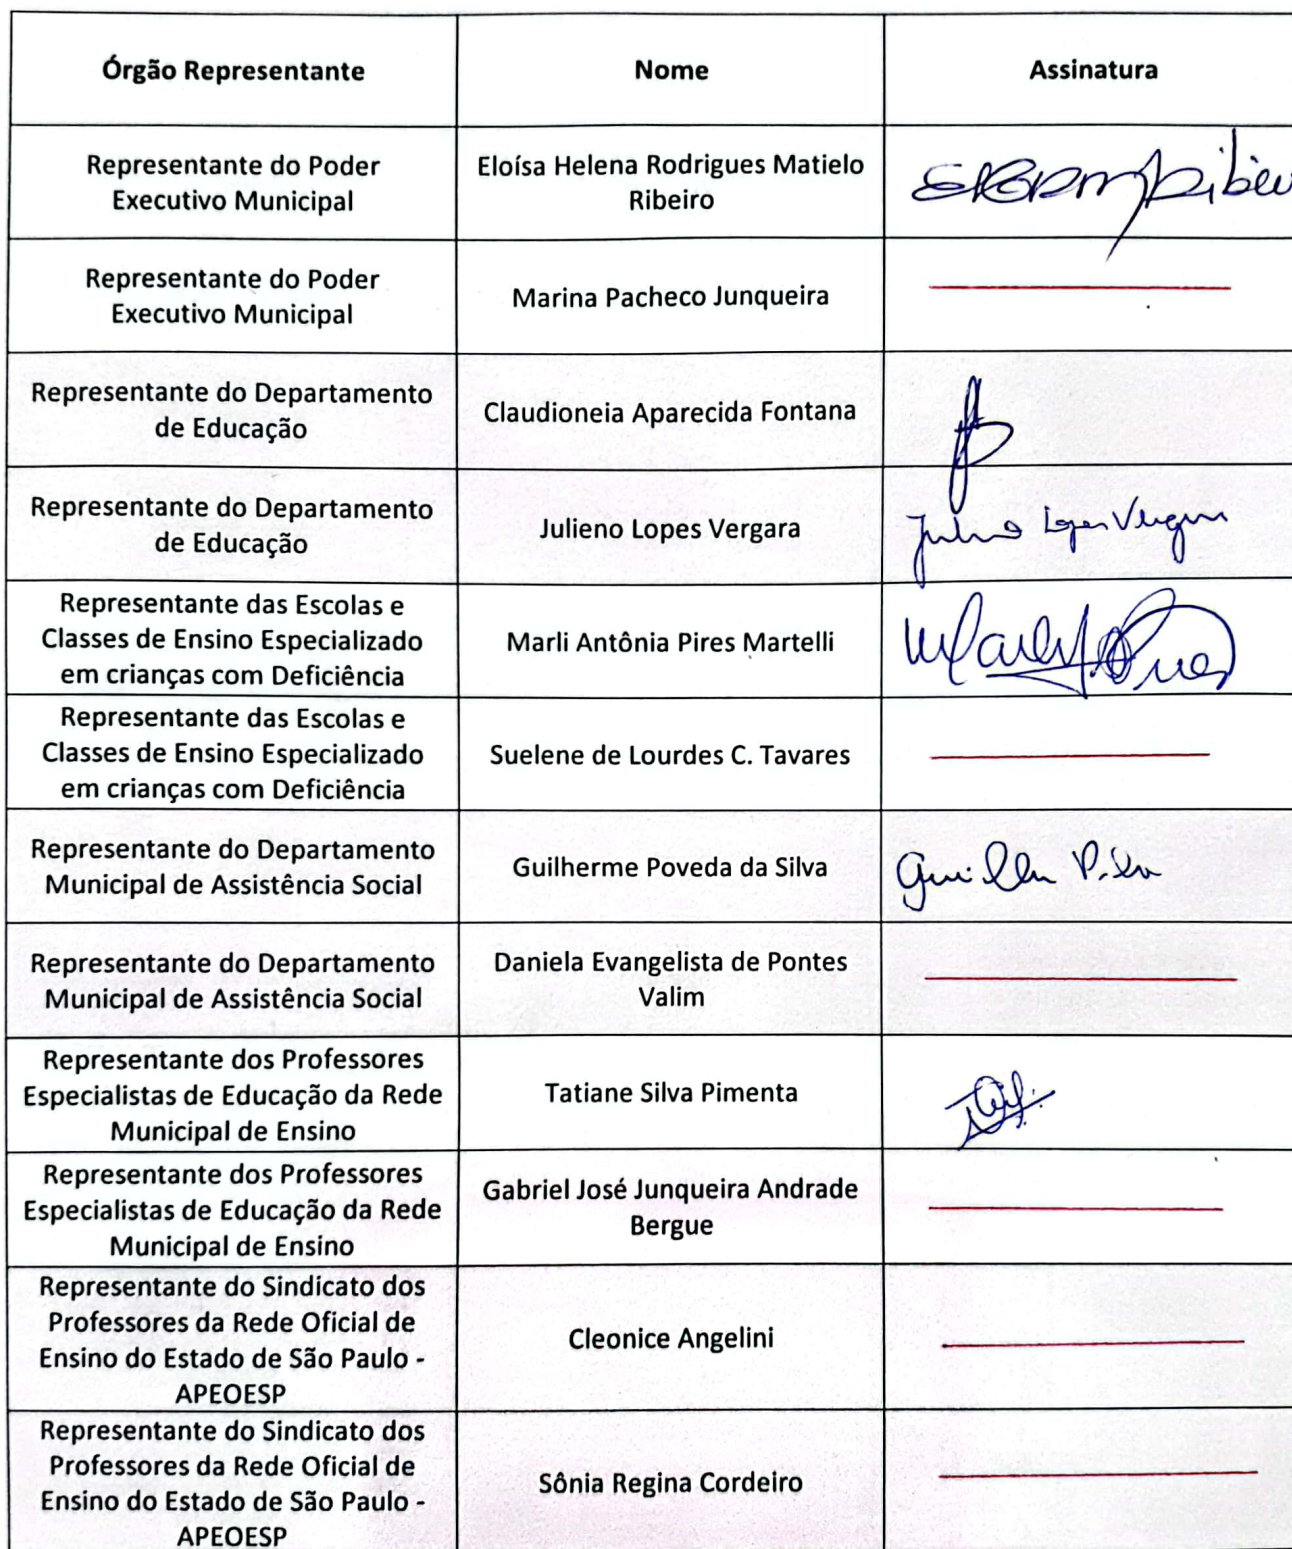 Órgão Representante
Nome
Assinatura
Representante do Poder
Executivo Municipal
Eloísa Helena Rodrigues Matielo
Ribeiro
Representante do Poder
Executivo Municipal
Marina Pacheco Junqueira
Representante do Departamento
de Educação
Claudioneia Aparecida Fontana
Representante do Departamento
de Educação
Julieno Lopes Vergara
Julieno Lopes Vergara
Representante das Escolas e
Classes de Ensino Especializado
em crianças com Deficiência
Marli Antônia Pires Martelli
Representante das Escolas e
Classes de Ensino Especializado
em crianças com Deficiência
Suelene de Lourdes C. Tavares
Representante do Departamento
Municipal de Assistência Social
Guilherme Poveda da Silva
Representante do Departamento
Municipal de Assistência Social
Daniela Evangelista de Pontes
Valim
Representante dos Professores
Especialistas de Educação da Rede
Municipal de Ensino
Tatiane Silva Pimenta
Representante dos Professores
Especialistas de Educação da Rede
Municipal de Ensino
Gabriel José Junqueira Andrade
Bergue
Representante do Sindicato dos
Professores da Rede Oficial de
Ensino do Estado de São Paulo -
APEOESP
Cleonice Angelini
Representante do Sindicato dos
Professores da Rede Oficial de
Ensino do Estado de São Paulo -
APEOESP
Sônia Regina Cordeiro